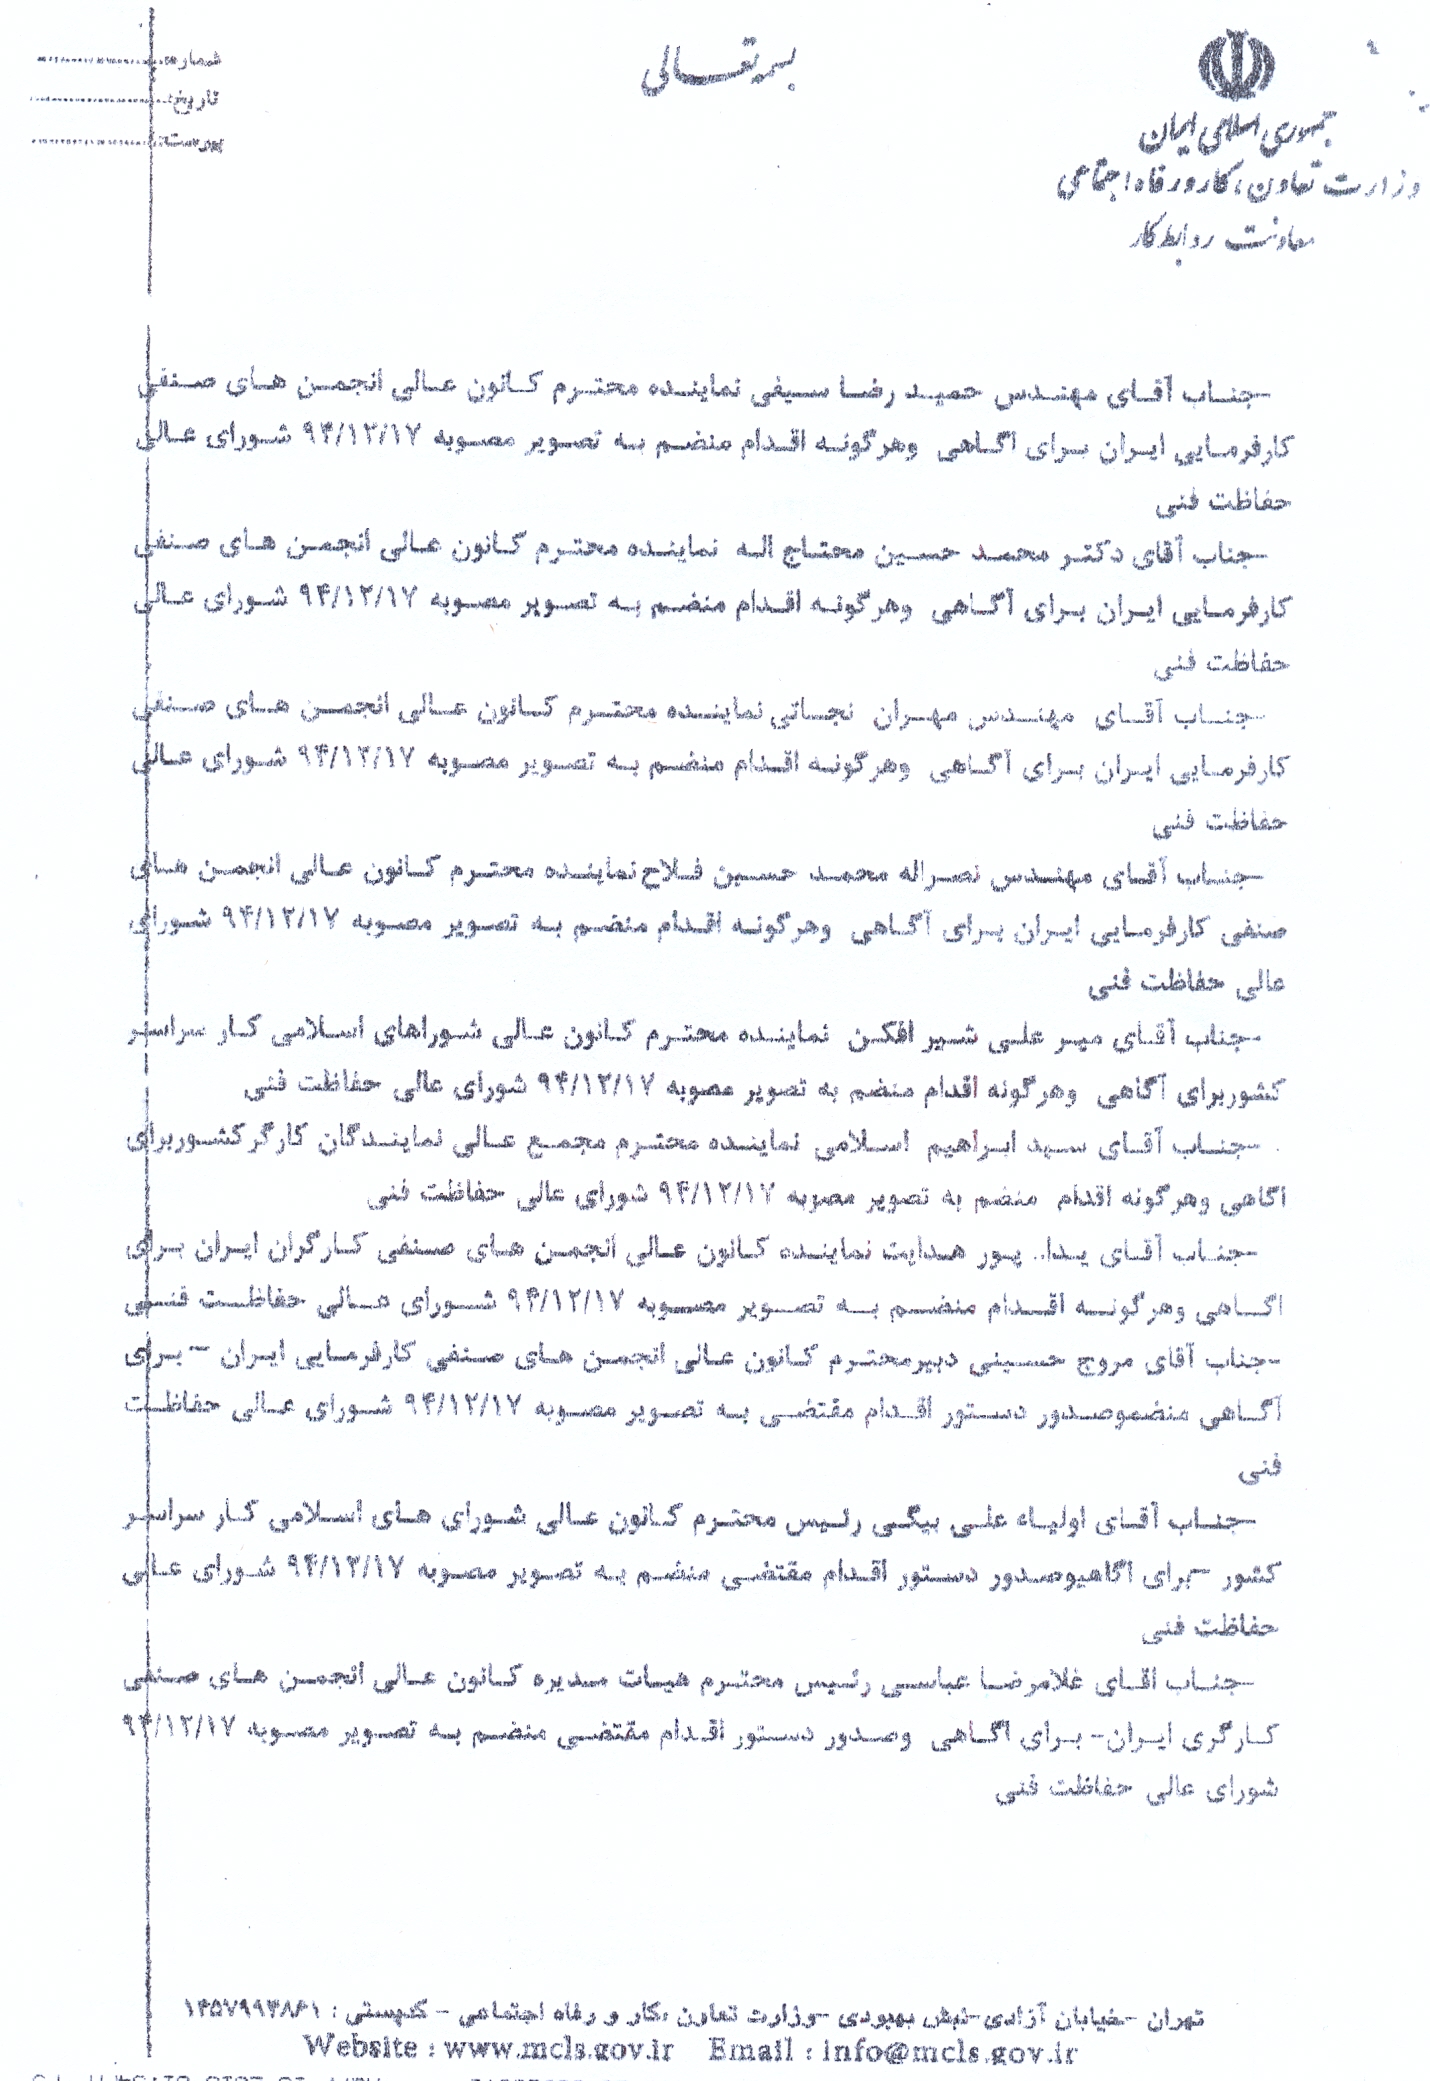 بسمه تعالی
جمهوری اسلامی ایران
وزارت تعاون، کار و رفاه اجتماعی
معاونت روابط کار
شماره:
تاریخ:
پیوست:
-جناب آقای مهندس حمید رضا سیفی نماینده محترم کانون عالی انجمن های صنفی
کارفرمایی ایران برای آگاهی وهرگونه اقدام منضم به تصویر مصوبه ۹۴/۱۲/۱۷ شورای عالی
حفاظت فنی
-جناب آقای دکتر محمد حسین محتاج اله نماینده محترم کانون عالی انجمن های صنفی
کارفرمایی ایران برای آگاهی وهرگونه اقدام منضم به تصویر مصوبه ۹۴/۱۲/۱۷ شورای عالی
حفاظت فنی
-جناب آقای مهندس مهران نجاتی نماینده محترم کانون عالی انجمن های صنفی
کارفرمایی ایران برای آگاهی وهرگونه اقدام منضم به تصویر مصوبه ۹۴/۱۲/۱۷ شورای عالی
حفاظت فنی
-جناب آقای مهندس نصراله محمد حسین فلاح نماینده محترم کانون عالی انجمن های
صنفی کارفرمایی ایران برای آگاهی وهرگونه اقدام منضم به تصویر مصوبه ۹۴/۱۲/۱۷ شورای
عالی حفاظت فنی
-جناب آقای میر علی شیر افکن نماینده محترم کانون عالی شوراهای اسلامی کار سراسر
کشوربرای آگاهی وهرگونه اقدام منضم به تصویر مصوبه ۹۴/۱۲/۱۷ شورای عالی حفاظت فنی
-جناب آقای سید ابراهیم اسلامی نماینده محترم مجمع عالی نمایندگان کارگرکشوربرای
اگاهی وهرگونه اقدام منضم به تصویر مصوبه ۹۴/۱۲/۱۷ شورای عالی حفاظت فنی
-جناب آقای یدا.. پور هدایت نماینده کانون عالی انجمن های صنفی کارگران ایران برای
اگاهی وهرگونه اقدام منضم به تصویر مصوبه ۹۴/۱۲/۱۷ شورای عالی حفاظت فنی
-جناب آقای مروج حسینی دبیرمحترم کانون عالی انجمن های صنفی کارفرمایی ایران – برای
آگاهی منضموصدور دستور اقدام مقتضی به تصویر مصوبه ۹۴/۱۲/۱۷ شورای عالی حفاظت
فنی
-جناب آقای اولیاء علی بیگی رئیس محترم کانون عالی شورای های اسلامی کار سراسر
کشور –برای اگاهیوصدور دستور اقدام مقتضی منضم به تصویر مصوبه ۹۴/۱۲/۱۷ شورای عالی
حفاظت فنی
-جناب اقای غلامرضا عباسی رئیس محترم هیات مدیره کانون عالی انجمن های صنفی
کارگری ایران- برای اگاهی وصدور دستور اقدام مقتضی منضم به تصویر مصوبه ۹۴/۱۲/۱۷
شورای عالی حفاظت فنی
تهران –خیابان آزادی–نبش بهبودی –وزارت تعاون ،کار و رفاه اجتماعی – کدپستی : ۱۴۵۷۹۹۴۸۶۱
Website : www.mcls.gov.ir Email : info@mcls.gov.ir